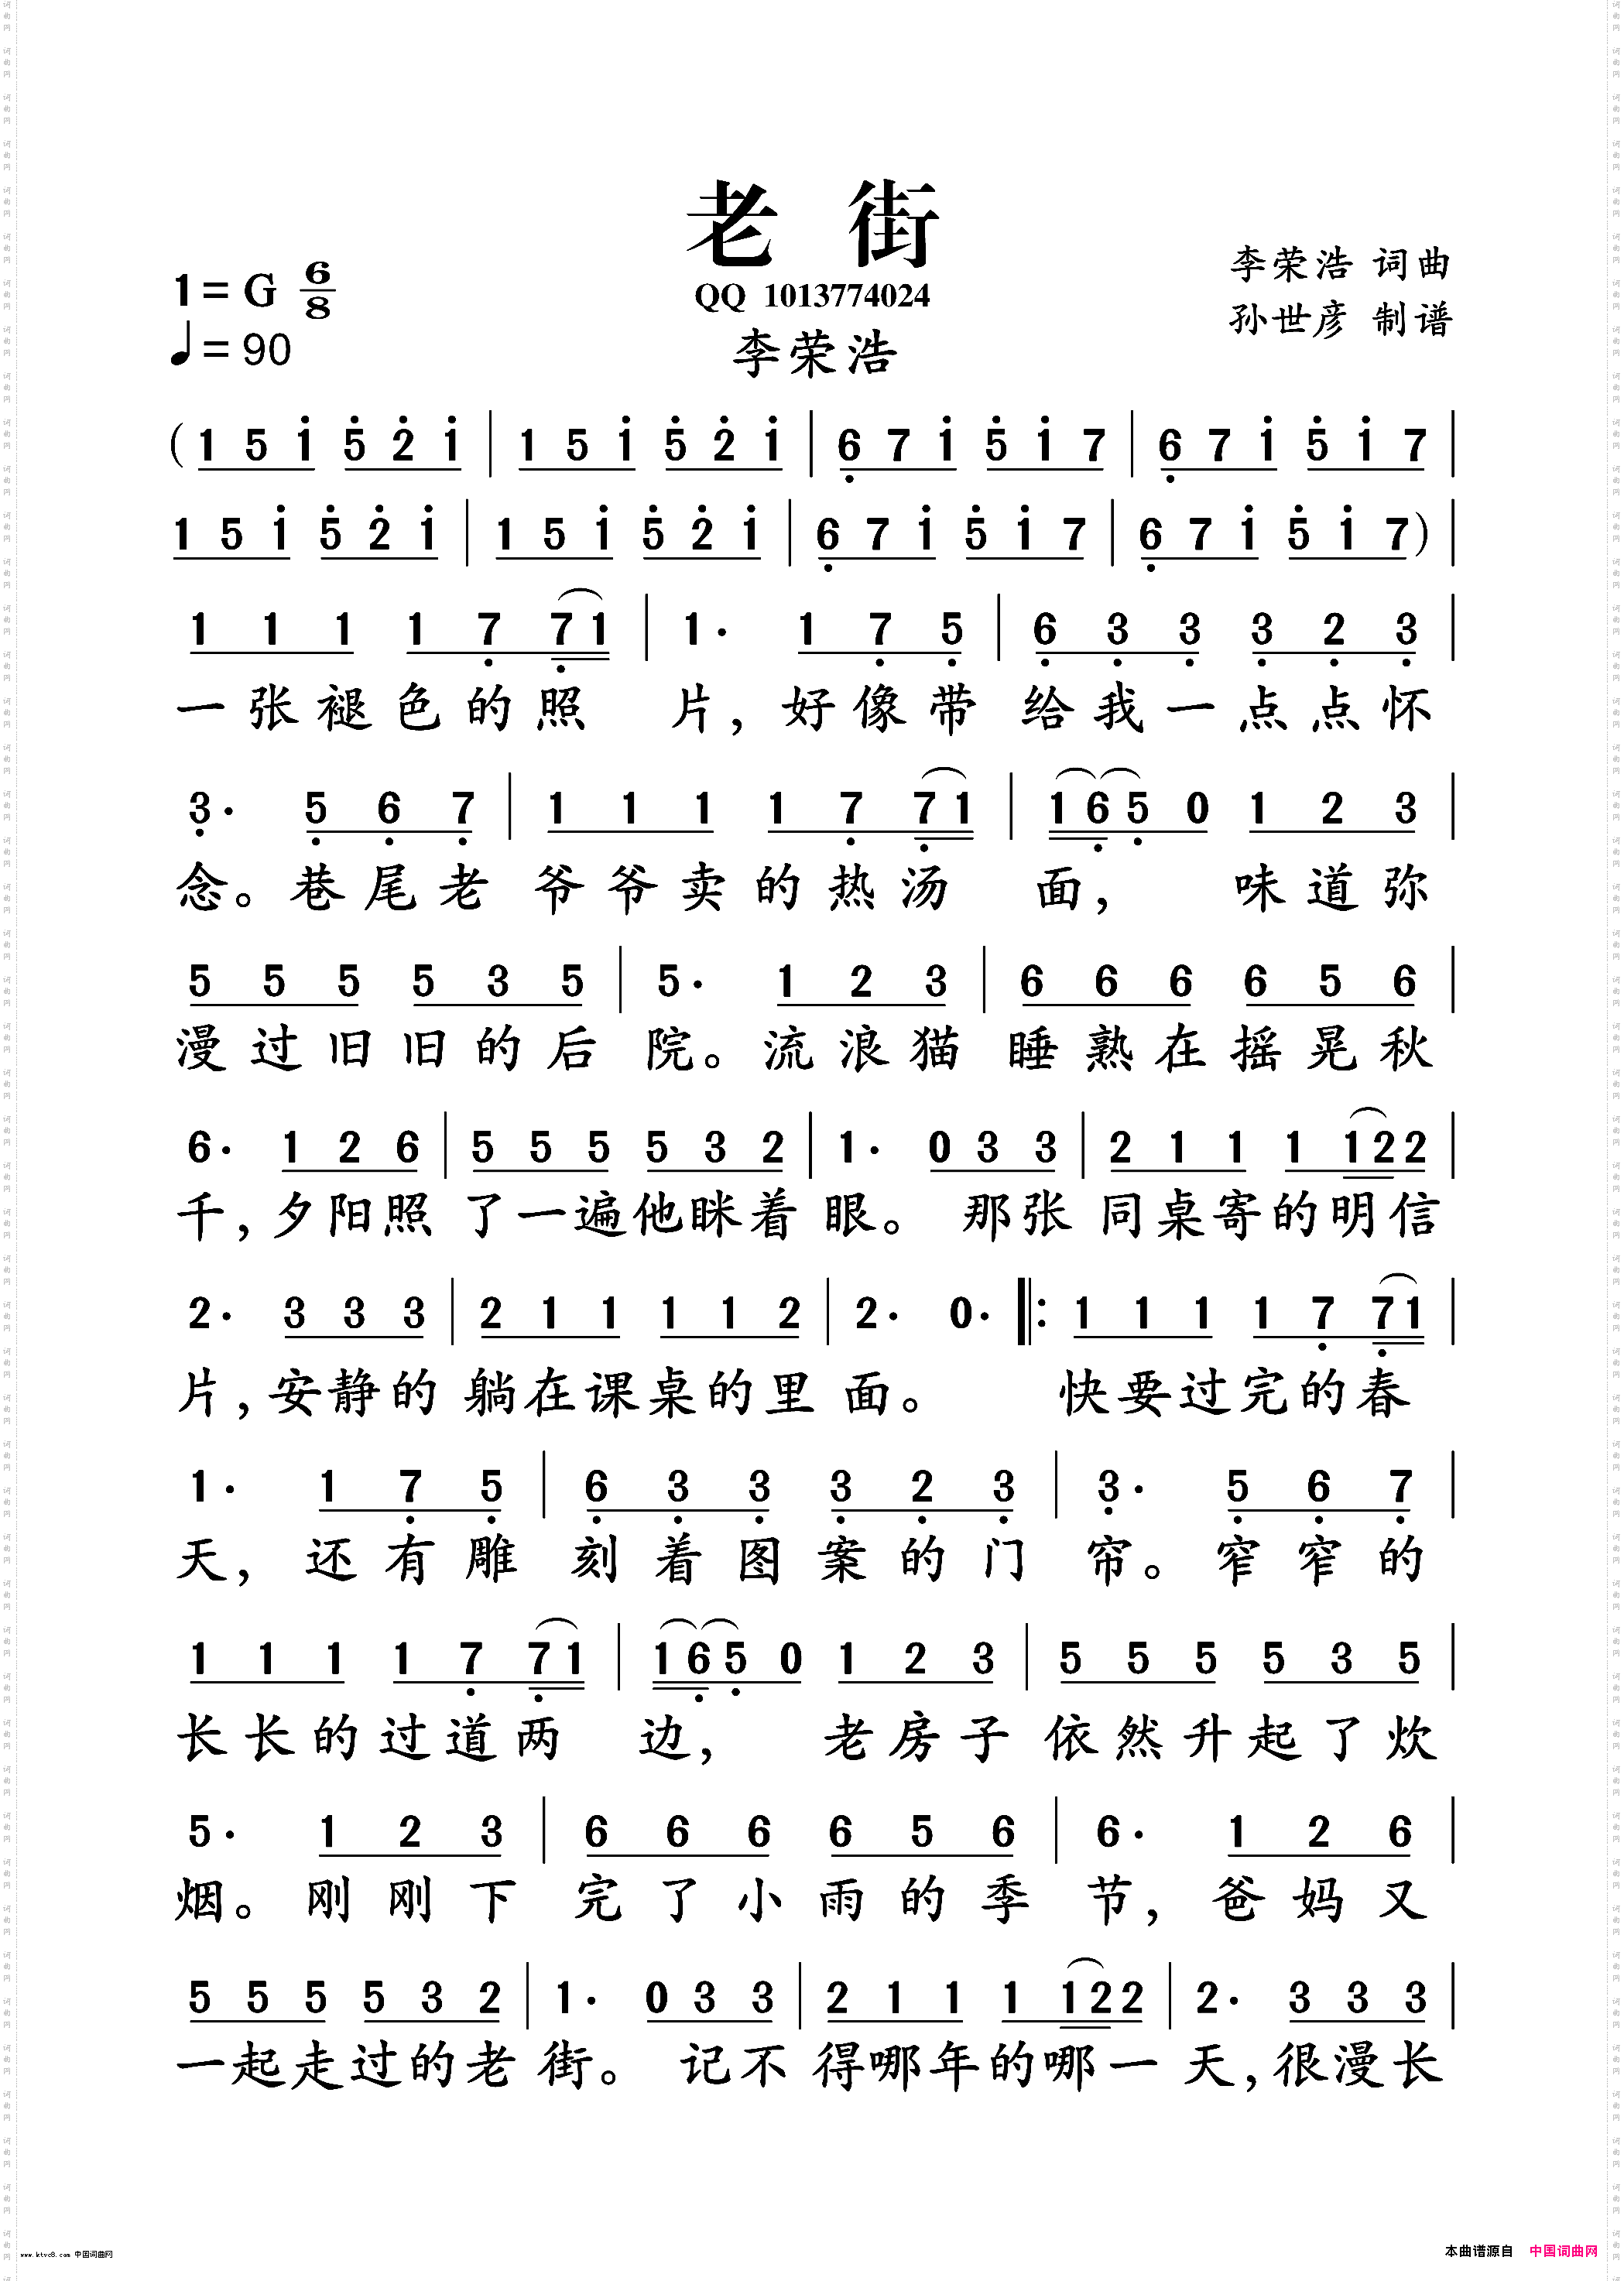 老 街
1= G 6/8
QQ 1013774024
李荣浩 词曲
孙世彦 制谱
♩= 90
李荣浩
(1 5 i 5̇ 2̇ i | 1 5 i 5̇ 2̇ i | 6̣ 7 i 5̇ i 7 | 6̣ 7 i 5̇ i 7 |
1 5 i 5̇ 2̇ i | 1 5 i 5̇ 2̇ i | 6̣ 7 i 5̇ i 7 | 6̣ 7 i 5̇ i 7) |
1 1 1 1 7̣ 7̣ 1 | 1· 1 7̣ 5̣ | 6̣ 3̣ 3̣ 3̣ 2̣ 3̣ |
一张褪色的照 片,好像带 给我一点点怀
3̣· 5̣ 6̣ 7̣ | 1 1 1 1 7̣ 7̣ 1 | 1 6̣ 5̣ 0 1 2 3 |
念。巷尾老 爷爷卖的热汤 面, 味道弥
5 5 5 5 3 5 | 5· 1 2 3 | 6 6 6 6 5 6 |
漫过旧旧的后 院。流浪猫 睡熟在摇晃秋
6· 1 2 6 | 5 5 5 5 3 2 | 1· 0 3 3 | 2 1 1 1 1 2 2 |
千,夕阳照 了一遍他眯着 眼。 那张 同桌寄的明信
2· 3 3 3 | 2 1 1 1 1 2 | 2· 0· ‖: 1 1 1 1 7̣ 7̣ 1 |
片,安静的 躺在课桌的里 面。 快要过完的春
1· 1 7̣ 5̣ | 6̣ 3̣ 3̣ 3̣ 2̣ 3̣ | 3̣· 5̣ 6̣ 7̣ |
天,还有雕 刻着图案的门 帘。窄窄的
1 1 1 1 7̣ 7̣ 1 | 1 6̣ 5̣ 0 1 2 3 | 5 5 5 5 3 5 |
长长的过道两 边, 老房子 依然升起了炊
5· 1 2 3 | 6 6 6 6 5 6 | 6· 1 2 6 |
烟。刚刚下 完了小雨的季 节,爸妈又
5 5 5 5 3 2 | 1· 0 3 3 | 2 1 1 1 1 2 2 | 2· 3 3 3 |
一起走过的老 街。 记不 得哪年的哪一 天,很漫长
www.ktvc8.com 中国词曲网
本曲谱源自 中国词曲网